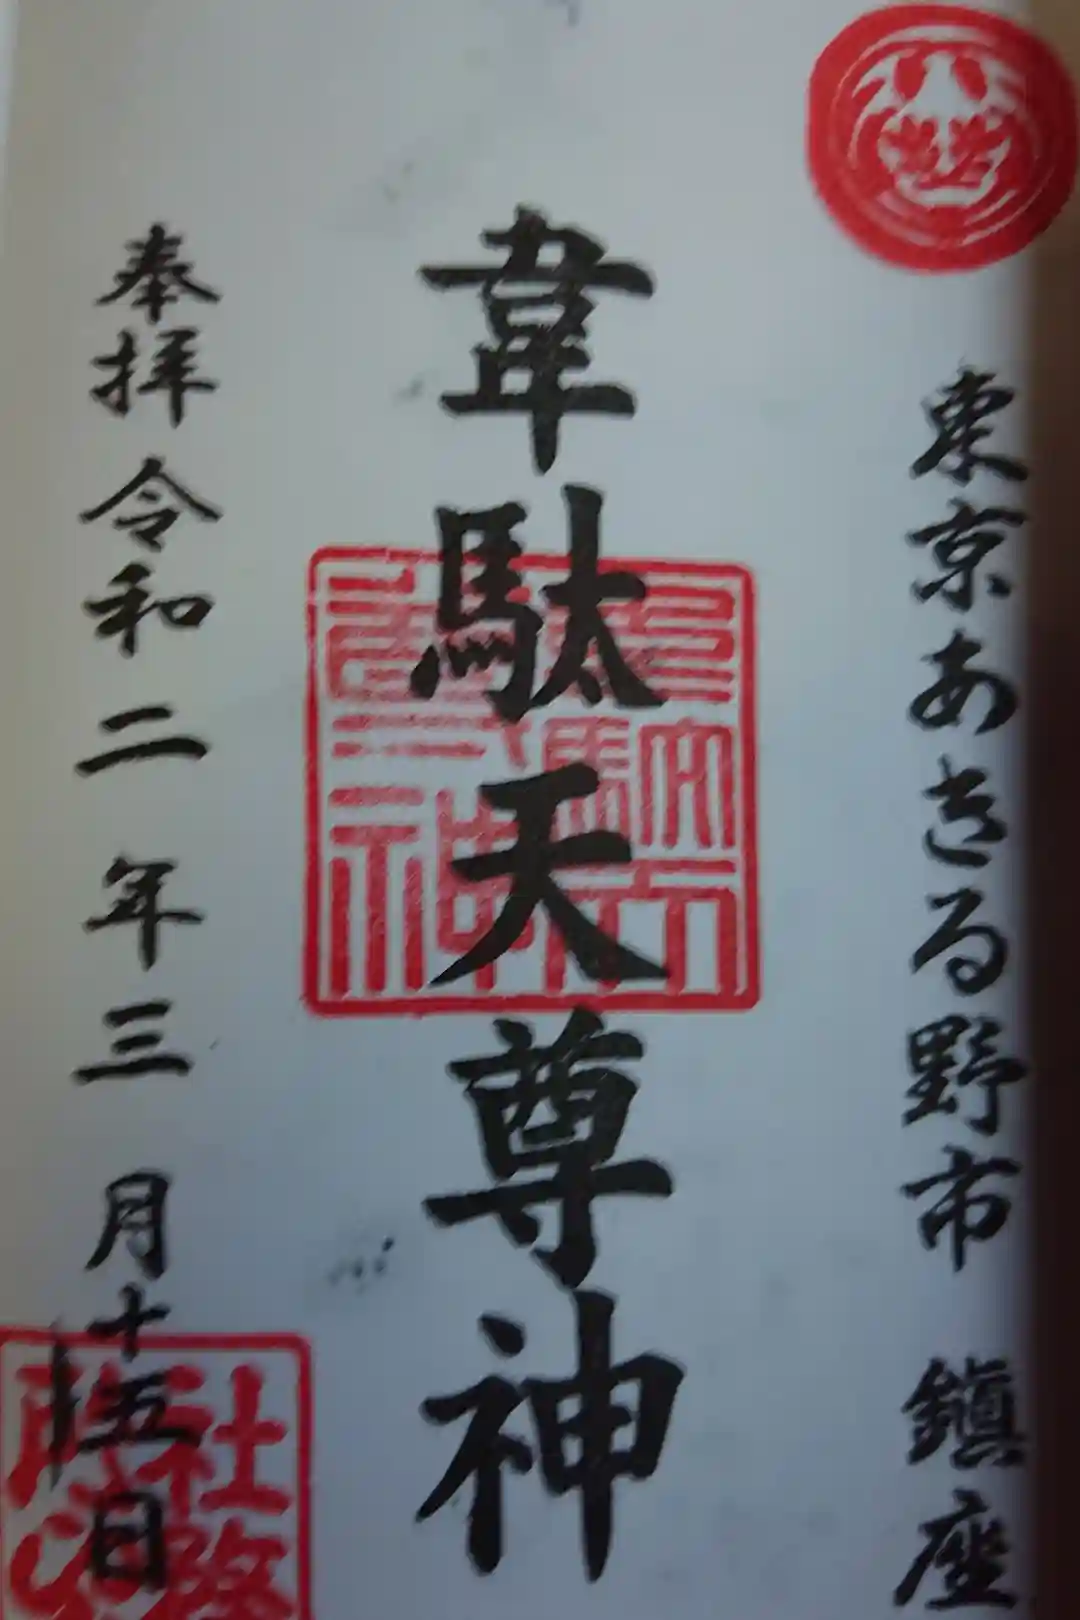 東京あきる野市 鎮座
韋駄天尊神
奉拝 令和二年三月十五日
社務